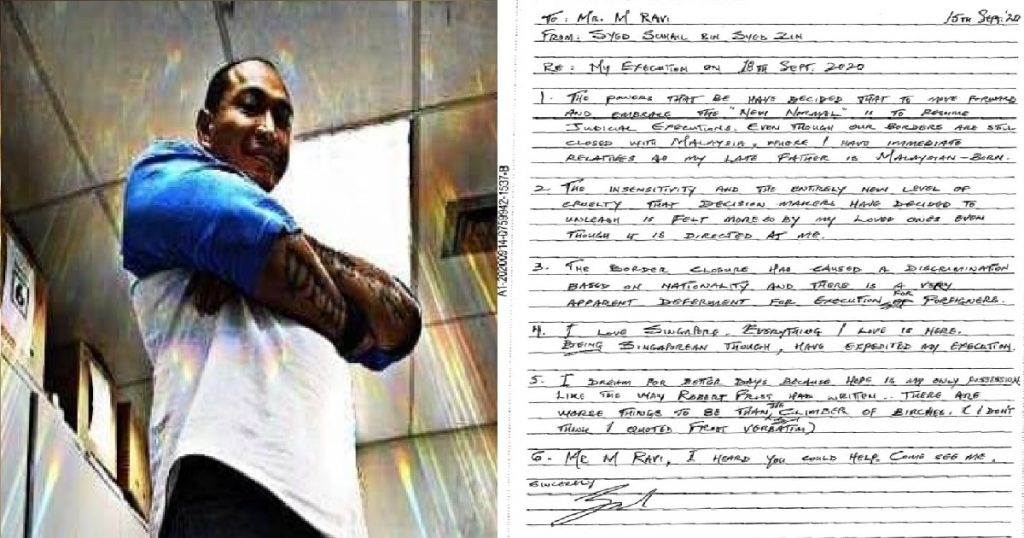 A1-20200914-0759942-1537-B
TO: MR. M RAVI 15TH SEPT. '20
FROM: SYED SUHAIL BIN SYED ZIN
RE: MY EXECUTION ON 18TH SEPT. 2020
1. THE POWERS THAT BE HAVE DECIDED THAT TO MOVE FORWARD
AND EMBRACE THE "NEW NORMAL" IS TO RESUME
JUDICIAL EXECUTIONS. EVEN THOUGH OUR BORDERS ARE STILL
CLOSED WITH MALAYSIA, WHERE I HAVE IMMEDIATE
RELATIVES AS MY LATE FATHER IS MALAYSIAN-BORN.
2. THE INSENSITIVITY AND THE ENTIRELY NEW LEVEL OF
CRUELTY THAT DECISION MAKERS HAVE DECIDED TO
UNLEASH IS FELT MORESO BY MY LOVED ONES EVEN
THOUGH IT IS DIRECTED AT ME.
3. THE BORDER CLOSURE HAS CAUSED A DISCRIMINATION
BASED ON NATIONALITY AND THERE IS A VERY
APPARENT DEFERMENT FOR EXECUTION FOR FOREIGNERS.
4. I LOVE SINGAPORE. EVERYTHING I LOVE IS HERE.
BEING SINGAPOREAN THOUGH, HAVE EXPEDITED MY EXECUTION.
5. I DREAM FOR BETTER DAYS BECAUSE HOPE IS MY ONLY POSSESSION
LIKE THE WAY ROBERT FROST HAD WRITTEN.. THERE ARE
WORSE THINGS TO BE THAN THE CLIMBER OF BIRCHES. (I DON'T
THINK I QUOTED FROST VERBATIM)
6. MR. M RAVI, I HEARD YOU COULD HELP. COME SEE ME.
SINCERELY